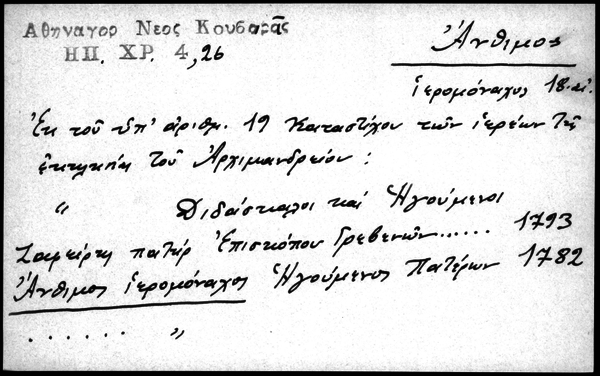 Αθηναγορ Νεος Κουβαρᾶς
ΗΠ. ΧΡ. 4, 26
Ἄνθιμος
ἱερομόναχος 18. αἰ.
Ἐκ τοῦ ὑπ' ἀριθμ. 19 Καταστίχου τῶν ἱερέων τῆς
τοῦ Ἀρχιμανδρείου :
" Διδάσκαλοι καὶ Ἡγούμενοι
πατὴρ Ἐπισκόπου Γρεβενῶν...... 1793
Ἄνθιμος ἱερομόναχος Ἡγούμενος Πατέρων 1782
. . . . . . "